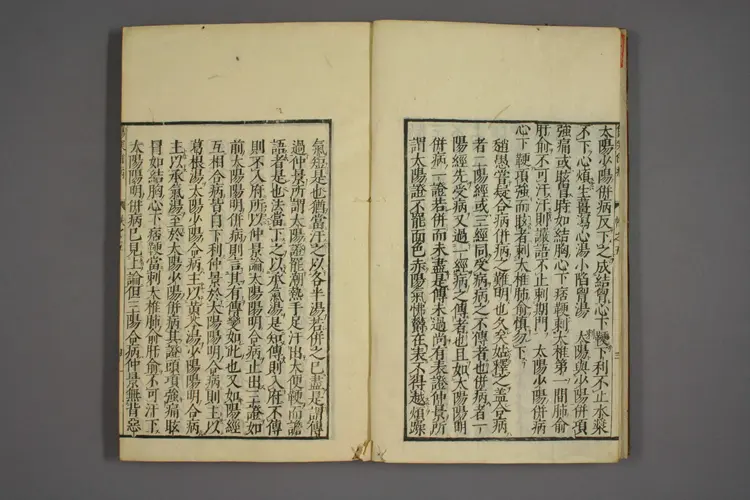 太陽少陽併病反下之成結胷心下鞕下利不止水漿
不下心煩生薑瀉心湯小陷胷湯　太陽與少陽併病項
強痛或眩冒時如結胸心下痞鞕刺大椎第一間肺俞
肝俞不可汗汗則讝語不止刺期門　太陽少陽併病
心下鞕項強而眩者刺大椎肺俞慎勿下
隨愚嘗疑合病併病之難明也久矣姑釋之蓋合病
者二陽經或三經同受病病之不傳者也併病者一
陽經先受病又過一經病之傳者也且如太陽陽明
併病一證若併而未盡是傳未過尚有表證仲景所
謂太陽證不罷面色赤陽氣怫鬱在表不得越煩躁
氣短是也猶當汗之以各半湯若併之已盡是謂傳
過仲景所謂太陽證罷潮熱手足汗出大便鞕而讝
語者是也法當下之以承氣湯是知傳則入府不傳
則不入府所以仲景論太陽陽明合病止出三證如
前太陽陽明併病則言其有傳變如此也又如陽經
互相合病皆自下利仲景於太陽陽明合病則主以
葛根湯太陽少陽合病主以黃芩湯少陽陽明合病
主以承氣湯至於太陽少陽併病其證頭項強痛眩
冒如結胸心下痞鞕當刺大椎肺俞肝俞不可汗下
太陽陽明併病已見上論但三陽合病仲景無背惡